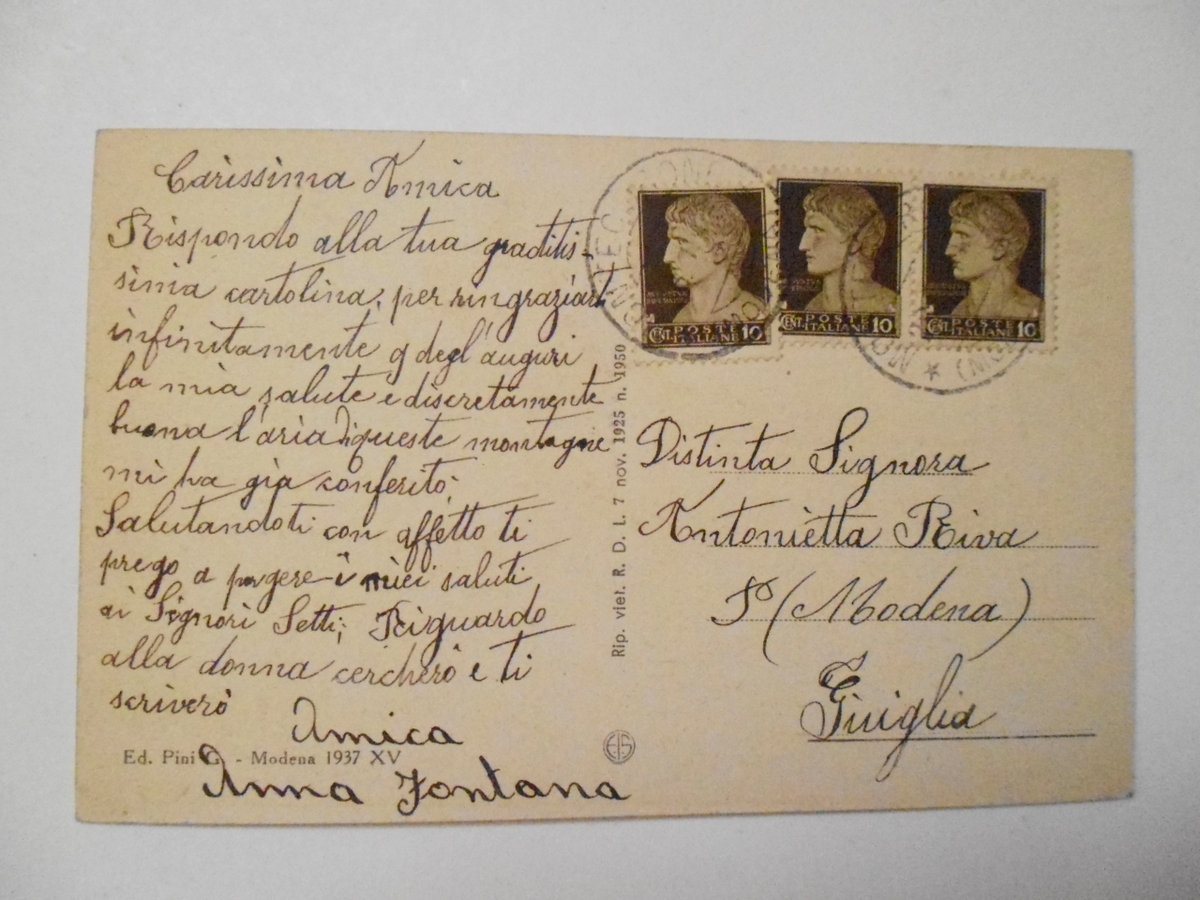 Carissima Amica
Rispondo alla tua graditis-
sima cartolina, per ringraziarti
infinitamente degl'auguri
la mia salute e discretamente
buona l'aria di queste montagne
mi ha gia conferito;
Salutandoti con affetto ti
prego a porgere i miei saluti
ai Signori Setti; Riguardo
alla donna cercherò e ti
scriverò
Amica
Anna Fontana
Ed. Pini G. - Modena 1937 XV
Rip. viet. R. D. L. 7 nov. 1925 n. 1950
EIS
CENT. POSTE ITALIANE 10
CENT. POSTE ITALIANE 10
CENT. POSTE ITALIANE 10
Distinta Signora
Antonietta Riva
P (Modena)
Guiglia